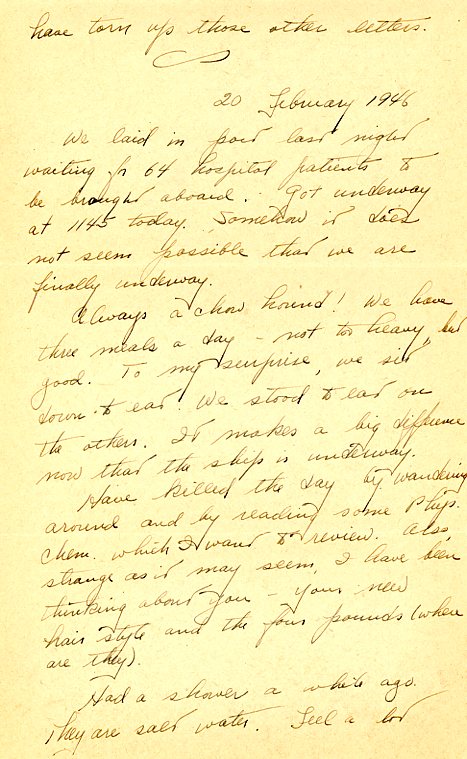 have torn up those other letters.
20 February 1946
We laid in port last night
waiting for 64 hospital patients to
be brought aboard. Got underway
at 1145 today. Somehow it does
not seem possible that we are
finally underway.
Always a chow hound! We have
three meals a day - not too heavy, but
good. To my surprise, we sit
down to eat. We stood to eat on
the others. It makes a big difference
now that the ship is underway.
Have killed the day by wandering
around and by reading some Phys.
Chem. which I want to review. Also,
strange as it may seem, I have been
thinking about you - your new
hair style and the four pounds (where
are they).
Had a shower a while ago.
They are salt water. Feel a lot